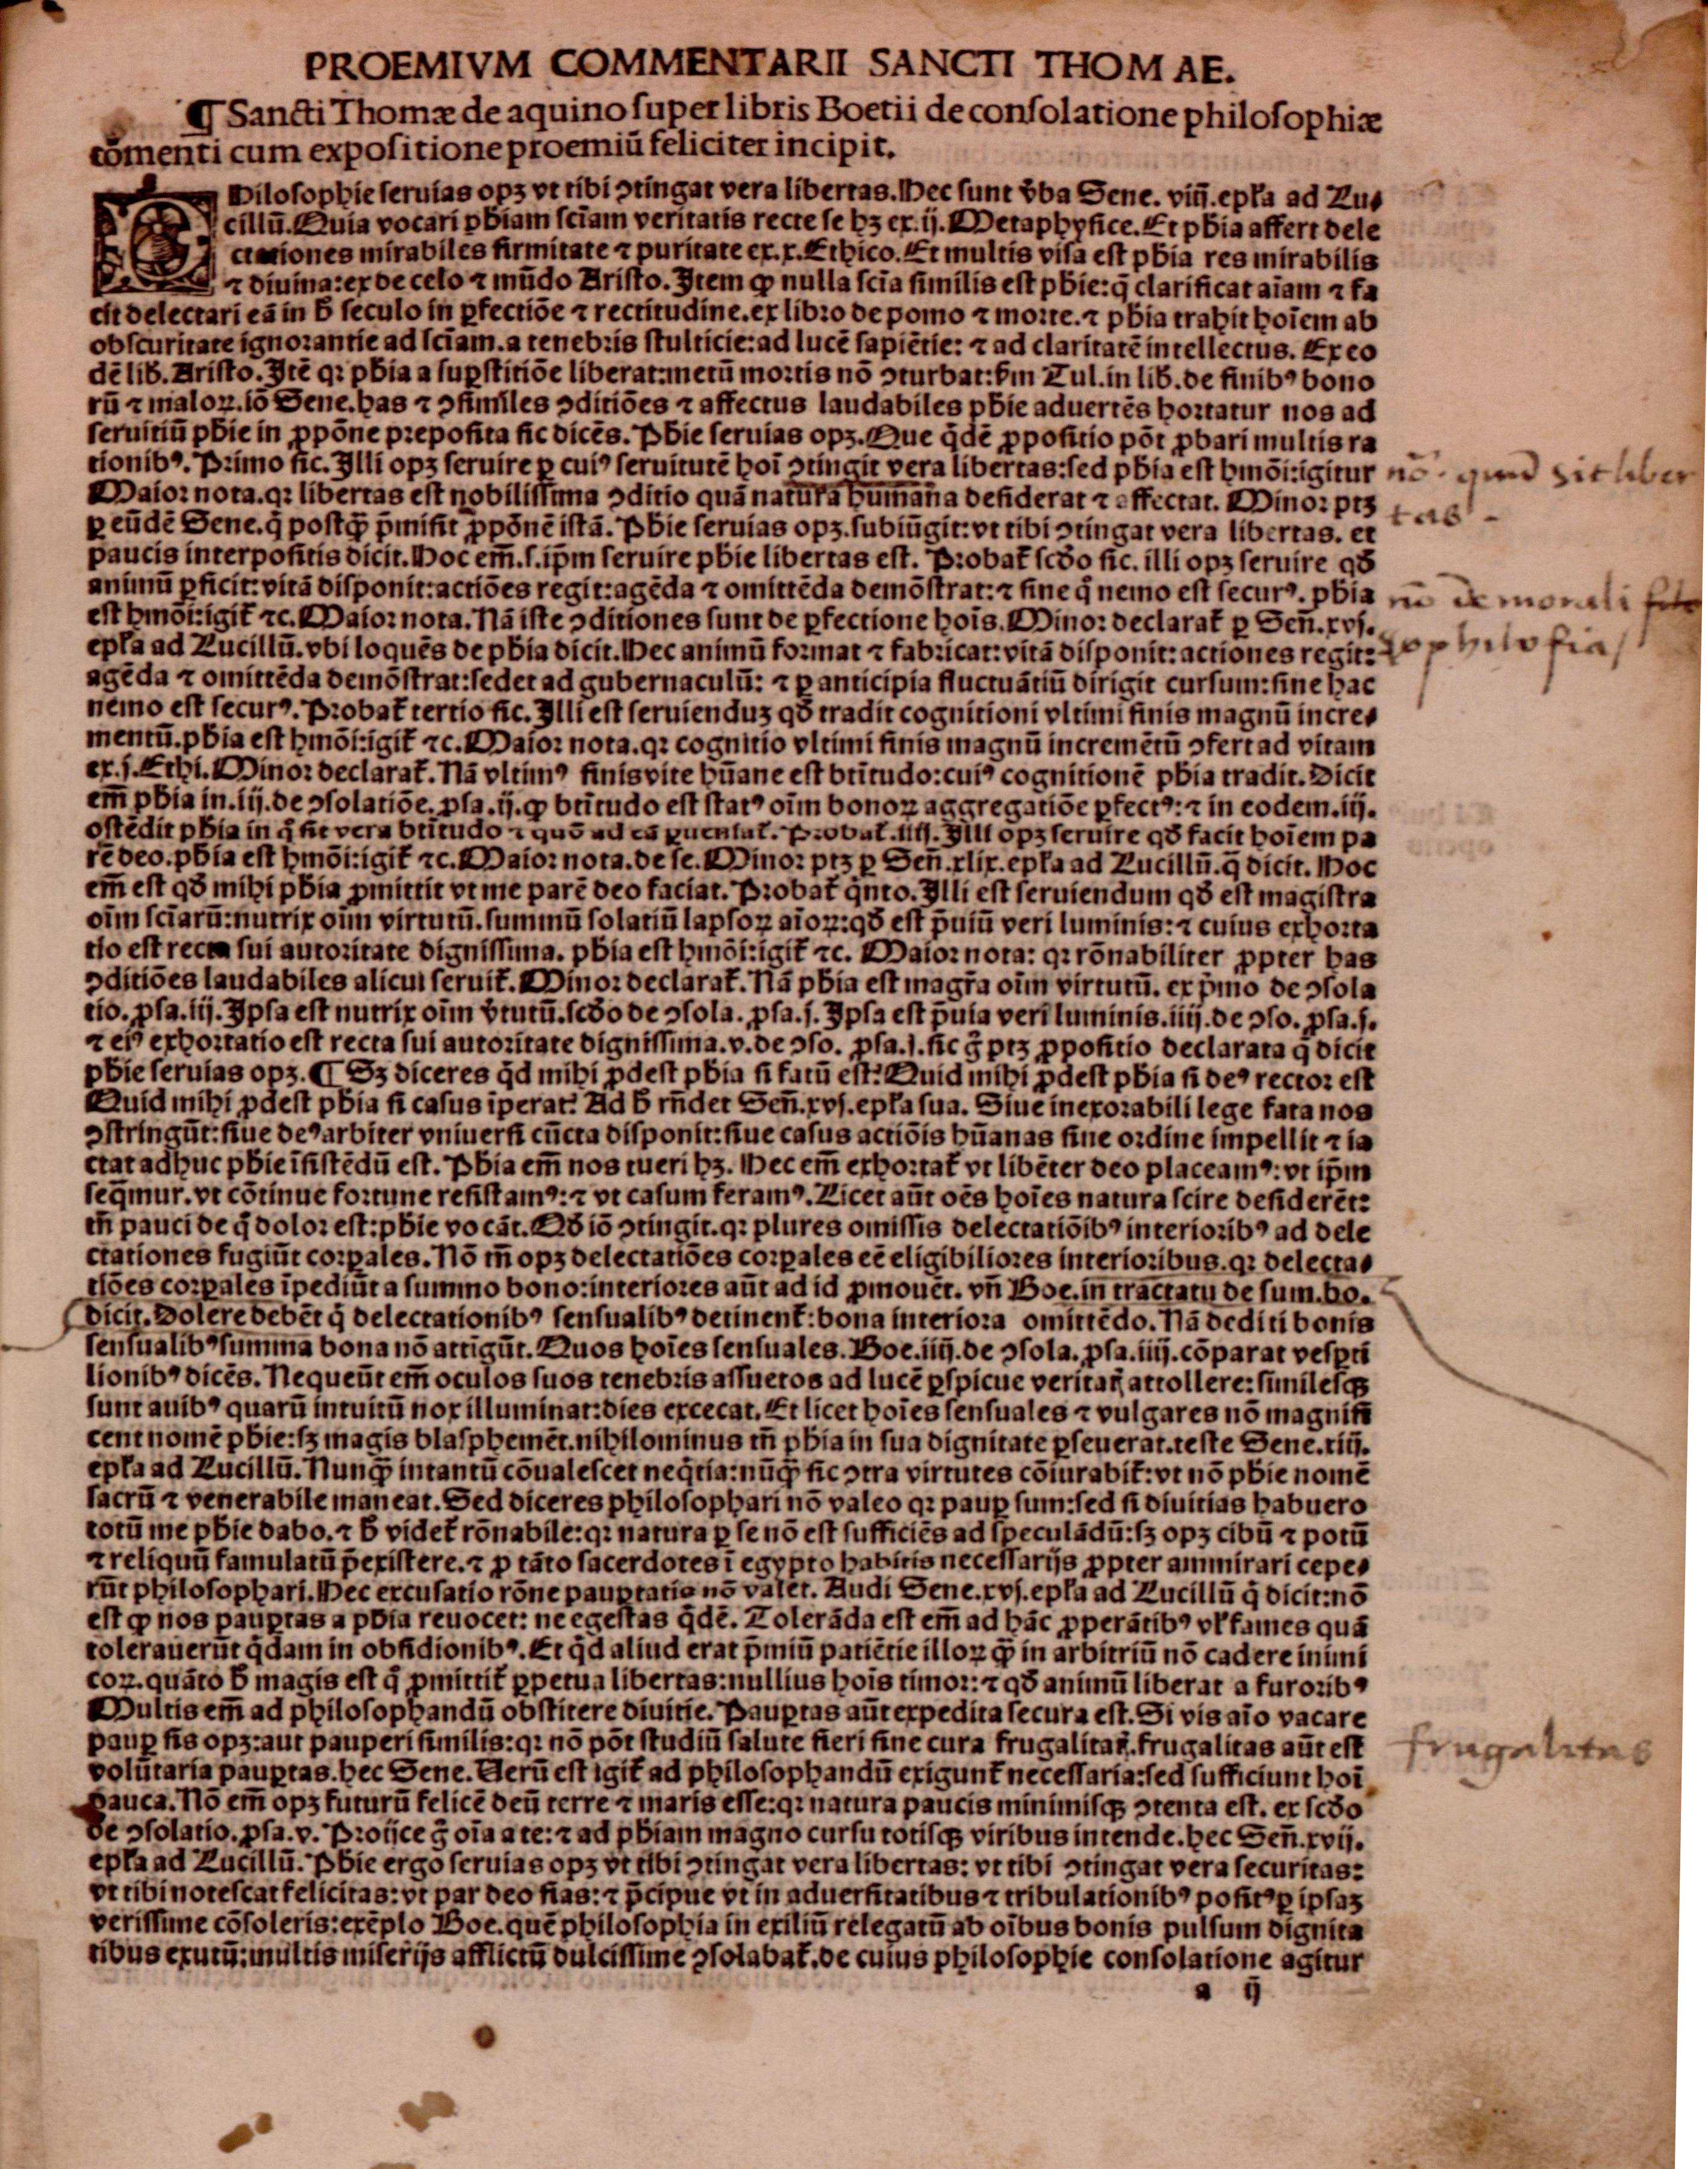 PROEMIVM COMMENTARII SANCTI THOMAE.
¶ Sancti Thomæ de aquino ſuper libris Boetii de conſolatione philoſophiæ
cõmenti cum expoſitione proemiũ feliciter incipit.
Hiloſophie ſeruias opꝫ vt tibi ↄtingat vera libertas. Hec ſunt v̄ba Sene. viij. epl̄a ad Lu⸗
cillũ. Quia vocari ph̄iam ſciam veritatis recte ſe hꝫ ex. ij. Metaphyſice. Et ph̄ia affert dele
ctationes mirabiles firmitate ⁊ puritate ex. x. Ethico. Et multis viſa eſt ph̄ia res mirabilis
⁊ diuina: ex de celo ⁊ mũdo Ariſto. Item ꝙ nulla ſcīa ſimilis eſt ph̄ie: q̄ clarificat aīam ⁊ fa
cit delectari eã in h̄ ſeculo in ꝑfectiōe ⁊ rectitudine. ex libro de pomo ⁊ morte. ⁊ ph̄ia trahit hoīem ab
obſcuritate ignorantie ad ſcīam. a tenebris ſtulticie: ad lucē ſapiētie: ⁊ ad claritatē intellectus. Ex eo
dē lib̄. Ariſto. Itē qꝛ ph̄ia a ſuꝑſtitiōe liberat: metū mortis nō ↄturbat: ẜm Tul. in lib̄. de finibꝰ bono
rū ⁊ maloꝝ. iō Sene. has ⁊ ↄſimiles ↄditiōes ⁊ affectus laudabiles ph̄ie aduertēs hortatur nos ad
ſeruitiū ph̄ie in ꝓpōne prepoſita ſic dicēs. Ph̄ie ſeruias opꝫ. Que q̇dē ꝓpoſitio pōt ꝓbari multis ra
tionibꝰ. Primo ſic. Illi opꝫ ſeruire ꝑ cuiꝰ ſeruitutē hoī ↄtingit vera libertas: ſed ph̄ia eſt hmōi: igitur
Maior nota. qꝛ libertas eſt nobiliſſima ↄditio quā natura humana deſiderat ⁊ affectat. Minor ptꝫ
ꝑ eūdē Sene. q̇ poſtꝙ̄ p̄miſit ꝓpōnē iſtā. Ph̄ie ſeruias opꝫ. ſubiūgit: vt tibi ↄtingat vera libertas. et
paucis interpoſitis dicit. Hoc em̄. ſ. ip̄m ſeruire ph̄ie libertas eſt. Probat᷑ ſcd̄o ſic. illi opꝫ ſeruire qd̄
animū ꝑficit: vitā diſponit: actiōes regit: agēda ⁊ omittēda demōſtrat: ⁊ ſine q̇ nemo eſt ſecurꝰ. ph̄ia
eſt hmōi: igit᷑ ⁊c. Maior nota. Nā iſte ↄditiones ſunt de ꝑfectione hoīs. Minor declarat᷑ ꝑ Sen̄. xvj.
epl̄a ad Lucillū. vbi loquēs de ph̄ia dicit. Hec animū format ⁊ fabricat: vitā diſponit: actiones regit:
agēda ⁊ omittēda demōſtrat: ſedet ad gubernaculū: ⁊ ꝑ anticipia fluctuātiū dirigit curſum: ſine hac
nemo eſt ſecurꝰ. Probat᷑ tertio ſic. Illi eſt ſeruienduꝫ qd̄ tradit cognitioni vltimi finis magnū incre⸗
mentū. ph̄ia eſt hmōi: igit᷑ ⁊c. Maior nota. qꝛ cognitio vltimi finis magnū incremētū ↄfert ad vitam
ex. j. Ethi. Minor declarat᷑. Nā vltimꝰ finis vite hūane eſt btītudo: cuiꝰ cognitionē ph̄ia tradit. Dicit
em̄ ph̄ia in. iij. de ↄſolatiōe. ꝓſa. ij. ꝙ btītudo eſt ſtatꝰ oīm bonoꝝ aggregatiōe ꝑfectꝰ: ⁊ in eodem. iij.
oſtēdit ph̄ia in q̇ ſit vera btītudo ⁊ quō ad eā ꝑueniat᷑. Probat᷑. iiij. Illi opꝫ ſeruire qd̄ facit hoīem pa
rē deo. ph̄ia eſt hmōi: igit᷑ ⁊c. Maior nota. de ſe. Minor ptꝫ ꝑ Sen̄. xlix. epl̄a ad Lucillū. q̄ dicit. Hoc
em̄ eſt qd̄ mihi ph̄ia ꝓmittit vt me parē deo faciat. Probat᷑ q̇nto. Illi eſt ſeruiendum qd̄ eſt magiſtra
oīm ſcīarū: nutrix oīm virtutū. ſummū ſolatiū lapſoꝝ aīoꝝ: qd̄ eſt p̄uiū veri luminis: ⁊ cuius exhorta
tio eſt recta ſui autoritate digniſſima. ph̄ia eſt hmōi: igit᷑ ⁊c. Maior nota: qꝛ rōnabiliter ꝓpter has
ↄditiōes laudabiles alicui ſeruit᷑. Minor declarat᷑. Nā ph̄ia eſt magr̄a oīm virtutū. ex ṗmo de ↄſola
tio. ꝓſa. iij. Ipſa eſt nutrix oīm v̄tutū. ſcd̄o de ↄſola. ꝓſa. j. Ipſa eſt p̄uia veri luminis. iiij. de ↄſo. ꝓſa. j.
⁊ eiꝰ exhortatio eſt recta ſui autoritate digniſſima. v. de ↄſo. ꝓſa. j. ſic g̊ ptꝫ ꝓpoſitio declarata q̄ dicit
ph̄ie ſeruias opꝫ. ¶ Sꝫ diceres q̇d mihi ꝓdeſt ph̄ia ſi fatū eſt? Quid mihi ꝓdeſt ph̄ia ſi deꝰ rector eſt
Quid mihi ꝓdeſt ph̄ia ſi caſus īperat? Ad h̄ rn̄det Sen̄. xvj. epl̄a ſua. Siue inexorabili lege fata nos
ↄſtringūt: ſiue deꝰ arbiter vniuerſi cūcta diſponit: ſiue caſus actiōis hūanas ſine ordine impellit ⁊ ia
ctat adhuc ph̄ie īſiſtēdū eſt. Ph̄ia em̄ nos tueri hꝫ. Hec em̄ exhortat᷑ vt libēter deo placeamꝰ: vt ip̄m
ſeq̄mur. vt cōtinue fortune reſiſtamꝰ: ⁊ vt caſum feramꝰ. Licet aūt oēs hoīes natura ſcire deſiderēt:
tn̄ pauci de q̇ dolor eſt: ph̄ie vocāt. Qd̄ iō ↄtingit. qꝛ plures omiſſis delectatiōibꝰ interioribꝰ ad dele
ctationes fugiūt corꝑales. Nō tn̄ opꝫ delectatiōes corꝑales eē eligibiliores interioribus. qꝛ delecta⸗
tiōes corꝑales īpediūt a ſummo bono: interiores aūt ad id ꝓmouēt. vn̄ Boe. in tractatu de ſum. bo.
dicit. Dolere debēt q̇ delectationibꝰ ſenſualibꝰ detinent᷑: bona interiora omittēdo. Nā dediti bonis
ſenſualibꝰ ſumma bona nō attīgūt. Quos hoīes ſenſuales. Boe. iiij. de ↄſola. ꝓſa. iiij. cōparat veſꝑti
lionibꝰ dicēs. Nequeūt em̄ oculos ſuos tenebris aſſuetos ad lucē ꝑſpicue veritaꝭ attollere: ſimileſqꝫ
ſunt auibꝰ quarū intuitū nox illuminat: dies excecat. Et licet hoīes ſenſuales ⁊ vulgares nō magnifi
cent nomē ph̄ie: ſꝫ magis blaſphemēt. nihilominus tn̄ ph̄ia in ſua dignitate ꝑſeuerat. teſte Sene. xiij.
epl̄a ad Lucillū. Nunꝙ̄ intantū cōualeſcet neq̇tia: nūꝙ̄ ſic ↄtra virtutes cōiurabit᷑: vt nō ph̄ie nomē
ſacrū ⁊ venerabile maneat. Sed diceres philoſophari nō valeo qꝛ pauꝑ ſum: ſed ſi diuitias habuero
totū me ph̄ie dabo. ⁊ h̄ videt᷑ rōnabile: qꝛ natura ꝑ ſe nō eſt ſufficiēs ad ſpeculādū: ſꝫ opꝫ cibū ⁊ potū
⁊ reliquū famulatū p̄exiſtere. ⁊ ꝓ tāto ſacerdotes ī egypto habitis neceſſarijs ꝓpter ammirari cepe⸗
rūt philoſophari. Hec excuſatio rōne pauꝑtatis nō valet. Audi Sene. xvj. epl̄a ad Lucillū q̇ dicit: nō
eſt ꝙ nos pauꝑtas a ph̄ia reuocet: ne egeſtas q̇dē. Tolerāda eſt em̄ ad hāc ꝓperātibꝰ vl̄ fames quā
tolerauerūt q̇dam in obſidionibꝰ. Et q̇d aliud erat p̄miū patiētie illoꝝ ꝙ̄ in arbitriū nō cadere inimi
coꝝ. quāto h̄ magis eſt q̇ ꝓmittit᷑ ꝑpetua libertas: nullius hoīs timor: ⁊ qd̄ animū liberat a furoribꝰ
Multis em̄ ad philoſophandū obſtitere diuitie. Pauꝑtas aūt expedita ſecura eſt. Si vis aīo vacare
pauꝑ ſis opꝫ: aut pauperi ſimilis: qꝛ nō pōt ſtudiū ſalute fieri ſine cura frugalitaꝭ. frugalitas aūt eſt
volūtaria pauꝑtas. hec Sene. Uerū eſt igit᷑ ad philoſophandū exigunt᷑ neceſſaria: ſed ſufficiunt hoī
pauca. Nō em̄ opꝫ futurū felicē deū terre ⁊ maris eſſe: qꝛ natura paucis minimiſqꝫ ↄtenta eſt. ex ſcd̄o
de ↄſolatio. ꝓſa. v. Proijce g̊ oīa a te: ⁊ ad ph̄iam magno curſu totiſqꝫ viribus intende. hec Sen̄. xvij.
epl̄a ad Lucillū. Ph̄ie ergo ſeruias opꝫ vt tibi ↄtingat vera libertas: vt tibi ↄtingat vera ſecuritas:
vt tibi noteſcat felicitas: vt par deo fias: ⁊ p̄cipue vt in aduerſitatibus ⁊ tribulationibꝰ poſitꝰ ꝑ ipſaꝫ
veriſſime cōſoleris: exēplo Boe. quē philoſophia in exiliū relegatū ab oībus bonis pulſum dignita
tibus exutū: multis miſerijs afflictū dulciſſime ↄſolabat᷑. de cuius philoſophie conſolatione agitur
a ij
nō. quid sit liber
tas
nō de morali
philosofia
frugalitas